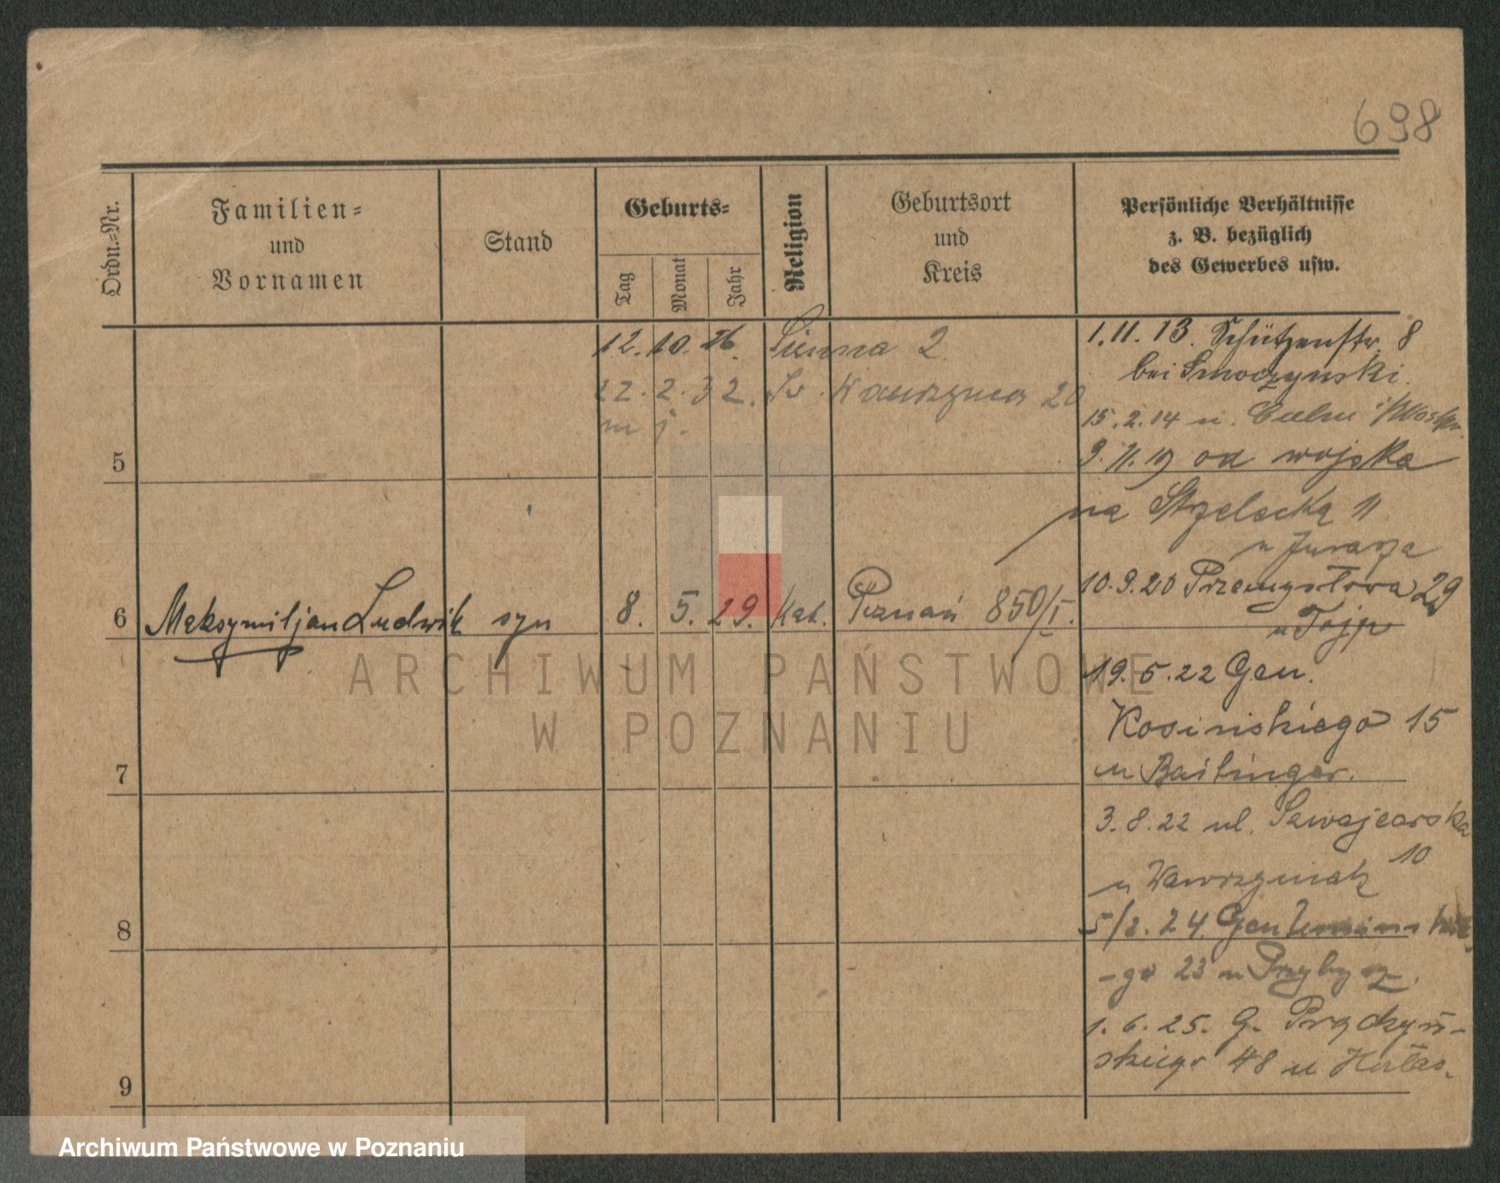 698
Ordn.-Nr.
Familien-
und
Vornamen
Stand
Geburts-
Tag
Monat
Jahr
Religion
Geburtsort
und
Kreis
Persönliche Verhältnisse
z. B. bezüglich
des Gewerbes usw.
12. 10. 26. Sienna 2
22. 2. 32. Św. Wawrzyńca 20
m j.
1. 11. 13. Schützenstr. 8
bei Smoczynski.
15. 2. 14 n. Culm
9. 11. 19 od wojska
na Strzelecką 11
u Jurasza
10. 9. 20 Przemysłowa 29
u
19. 5. 22 Gen.
Kosińskiego 15
u
3. 8. 22 ul.
10
u Wawrzyniak
5/8. 24. Gen
-go 23 u Przybysz.
1. 6. 25. G. Prądzyń-
skiego 48 u Hałas.
5
6 Maksymiljan Ludwik syn 8. 5. 29. kat. Poznań 850/I.
7
8
9
ARCHIWUM PAŃSTWOWE
W POZNANIU
Archiwum Państwowe w Poznaniu